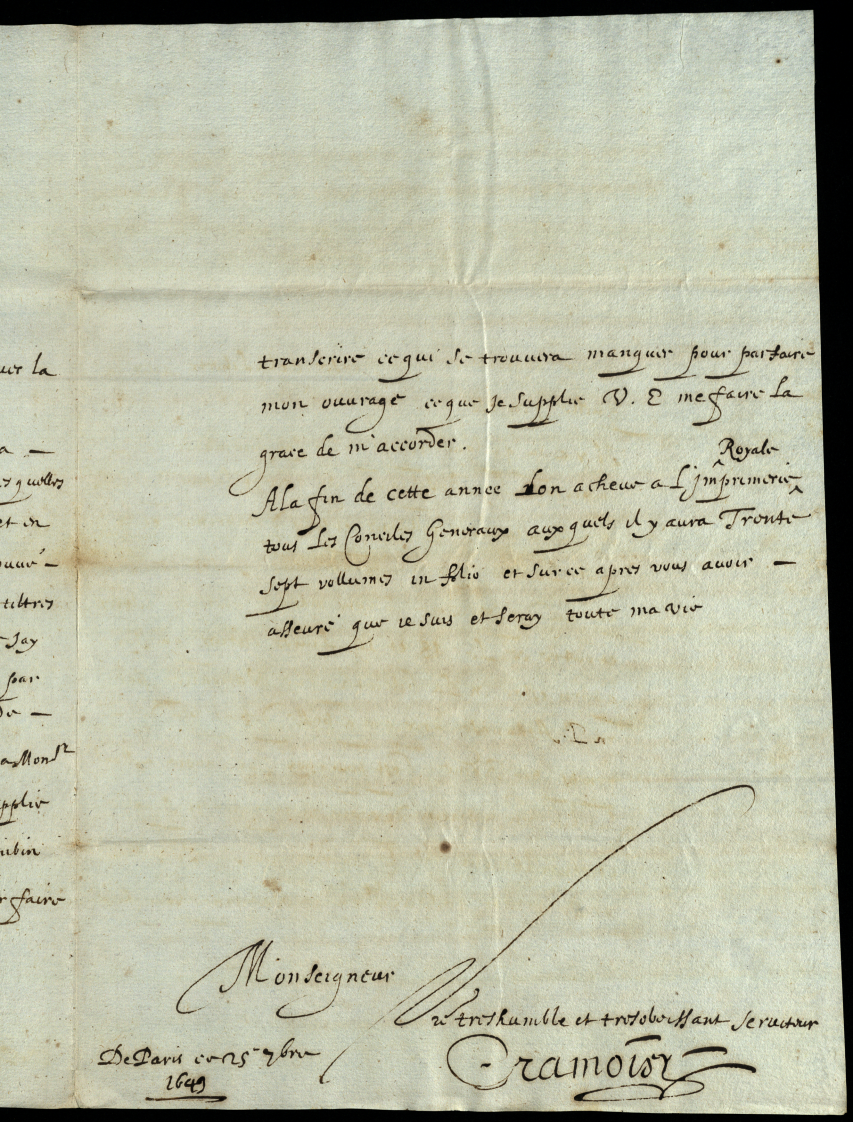 uer la
a —
esquelles
et en
ouué —
tiltres
e Jay
par
De —
a Monsr
pplie
ubin
r faire
transcrire ce qui se trouuera manquer pour parfaire
mon ouurage ce que Je supplie V. E me faire la
grace de m'accorder.
A la fin de cette annee Lon acheue a L'jmprimerie ^Royale^
tous Les Conciles Generaux auxquels il y aura Trente
sept vollumes in folio et sur ce apres vous auoir —
asseuré que ie suis et seray toute ma vie
Monseigneur
Vre treshumble et tresobeissant seruiteur
Cramoisy
De Paris ce 25e 7bre
1643